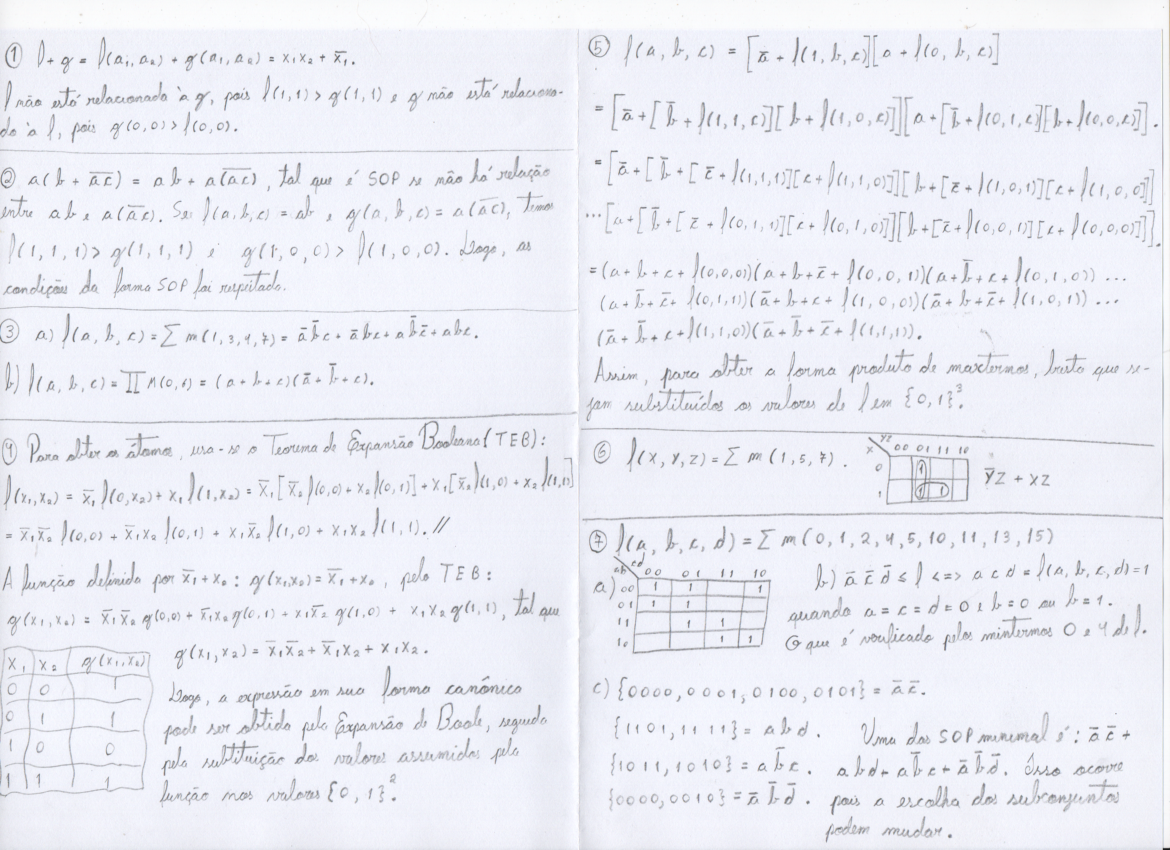 ① f+g = f(a₁,a₂) + g(a₁,a₂) = x₁x₂ + x̄₁.
f não está relacionado à g, pois f(1,1) > g(1,1) e g não está relaciona-
do à f, pois g(0,0) > f(0,0).
② a(b + \overline{ac}) = ab + a(\overline{ac}), tal que é SOP se não há relação
entre ab e a(\overline{ac}). Se f(a,b,c) = ab e g(a,b,c) = a(\overline{ac}), temos
f(1,1,1) > g(1,1,1) e g(1,0,0) > f(1,0,0). Logo, as
condições da forma SOP foi respeitado.
③ a) f(a,b,c) = ∑ m(1,3,4,7) = āb̄c + ābc + ab̄c̄ + abc.
b) f(a,b,c) = ∏ M(0,6) = (a+b+c)(ā+b̄+c).
④ Para obter os átomos, usa-se o Teorema de Expansão Booleana (TEB):
f(x₁,x₂) = x̄₁ f(0,x₂) + x₁ f(1,x₂) = x̄₁[x̄₂ f(0,0) + x₂ f(0,1)] + x₁[x̄₂ f(1,0) + x₂ f(1,1)]
= x̄₁x̄₂ f(0,0) + x̄₁x₂ f(0,1) + x₁x̄₂ f(1,0) + x₁x₂ f(1,1). //
A função definida por x̄₁+x₂ : g(x₁,x₂) = x̄₁+x₂, pelo TEB:
g(x₁,x₂) = x̄₁x̄₂ g(0,0) + x̄₁x₂ g(0,1) + x₁x̄₂ g(1,0) + x₁x₂ g(1,1), tal que
g(x₁,x₂) = x̄₁x̄₂ + x̄₁x₂ + x₁x₂.
x₁ x₂ g(x₁,x₂)
0 0 1
0 1 1
1 0 0
1 1 1
Logo, a expressão em sua forma canônica
pode ser obtida pela Expansão de Boole, seguida
pela subtituição dos valores assumidos pela
função nos valores {0,1}².
⑤ f(a,b,c) = [ā + f(1,b,c)][a + f(0,b,c)]
= [ā + [b̄ + f(1,1,c)][b + f(1,0,c)]][a + [b̄ + f(0,1,c)][b + f(0,0,c)]].
= [ā + [b̄ + [c̄ + f(1,1,1)][c + f(1,1,0)]][b + [c̄ + f(1,0,1)][c + f(1,0,0)]]
...[a + [b̄ + [c̄ + f(0,1,1)][c + f(0,1,0)]][b + [c̄ + f(0,0,1)][c + f(0,0,0)]]].
= (a+b+c+f(0,0,0))(a+b+c̄+f(0,0,1))(a+b̄+c+f(0,1,0)) ...
(a+b̄+c̄+f(0,1,1))(ā+b+c+f(1,0,0))(ā+b+c̄+f(1,0,1)) ...
(ā+b̄+c+f(1,1,0))(ā+b̄+c̄+f(1,1,1)).
Assim, para obter a forma produto de maxtermos, basta que se-
jam substituídos os valores de f em {0,1}³.
⑥ f(x,y,z) = ∑ m(1,5,7).
x yz 00 01 11 10
0 1
1 1 1
ȳz + xz
⑦ f(a,b,c,d) = ∑ m(0,1,2,4,5,10,11,13,15)
a) ab cd 00 01 11 10
00 1 1 1
01 1 1
11 1 1
10 1 1
b) āc̄d̄ ≤ f <=> acd = f(a,b,c,d) = 1
quando a = c = d = 0 e b = 0 ou b = 1.
O que é verificado pelos mintermos 0 e 4 de f.
c) {0000, 0001, 0100, 0101} = āc̄.
{1101, 1111} = abd.
{1011, 1010} = ab̄c.
{0000, 0010} = āb̄d̄.
Uma das SOP minimal é: āc̄ +
abd + ab̄c + āb̄d̄. Isso ocorre
pois a escolha dos subconjuntos
podem mudar.